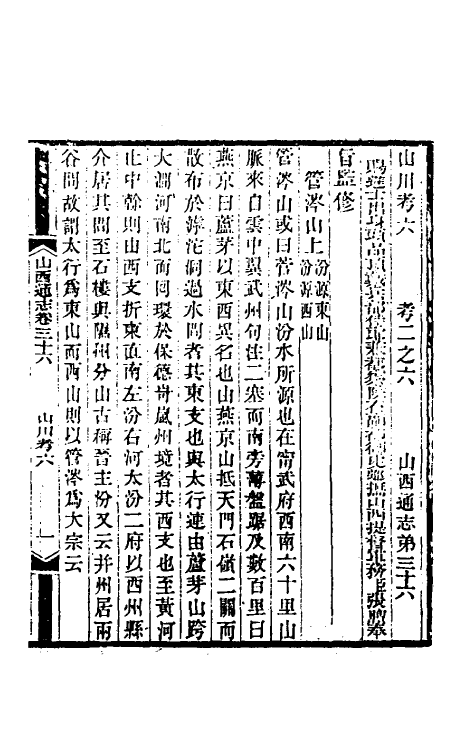 山川考六　考二之六　山西通志第三十六
賜進士出身頭品頂戴兵部侍郎兼都察院右副都御史巡撫山西提督軍務臣張煦奉
旨監修
管涔山上 汾源東山 汾源西山
管涔山或曰菅涔山汾水所源也在甯武府西南六十里山
脈來自雲中翼武州句注二塞而南旁薄盤踞及數百里曰
燕京曰蘆芽以東西異名也山燕京山抵天門石嶺二關而
散布於滹沱洞過水間者其東支也與太行連由蘆芽山跨
大澗河南北而回環於保德岢嵐州境者其西支也至黃河
止中幹則山西支折東直南左汾右河太汾二府以西州縣
介居其間至石樓與隰州分山古稱晉主汾又云并州居兩
谷間故謂太行爲東山而西山則以管涔爲大宗云
山西通志卷三十六　山川考六　一